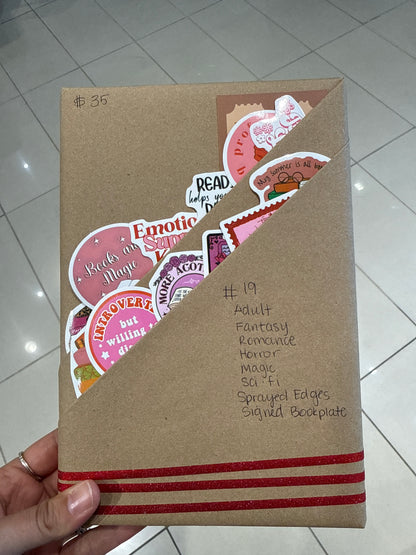 $ 35
READ
helps you
Emotio
Books are
Magic
MORE ACOT
INTROVERT
but
willing
# 19
Adult
Fantasy
Romance
Horror
Magic
Sci fi
Sprayed Edges
Signed Bookplate